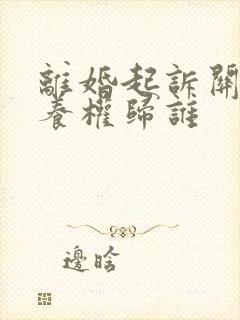 離婚起訴
養權歸誰
邊晗